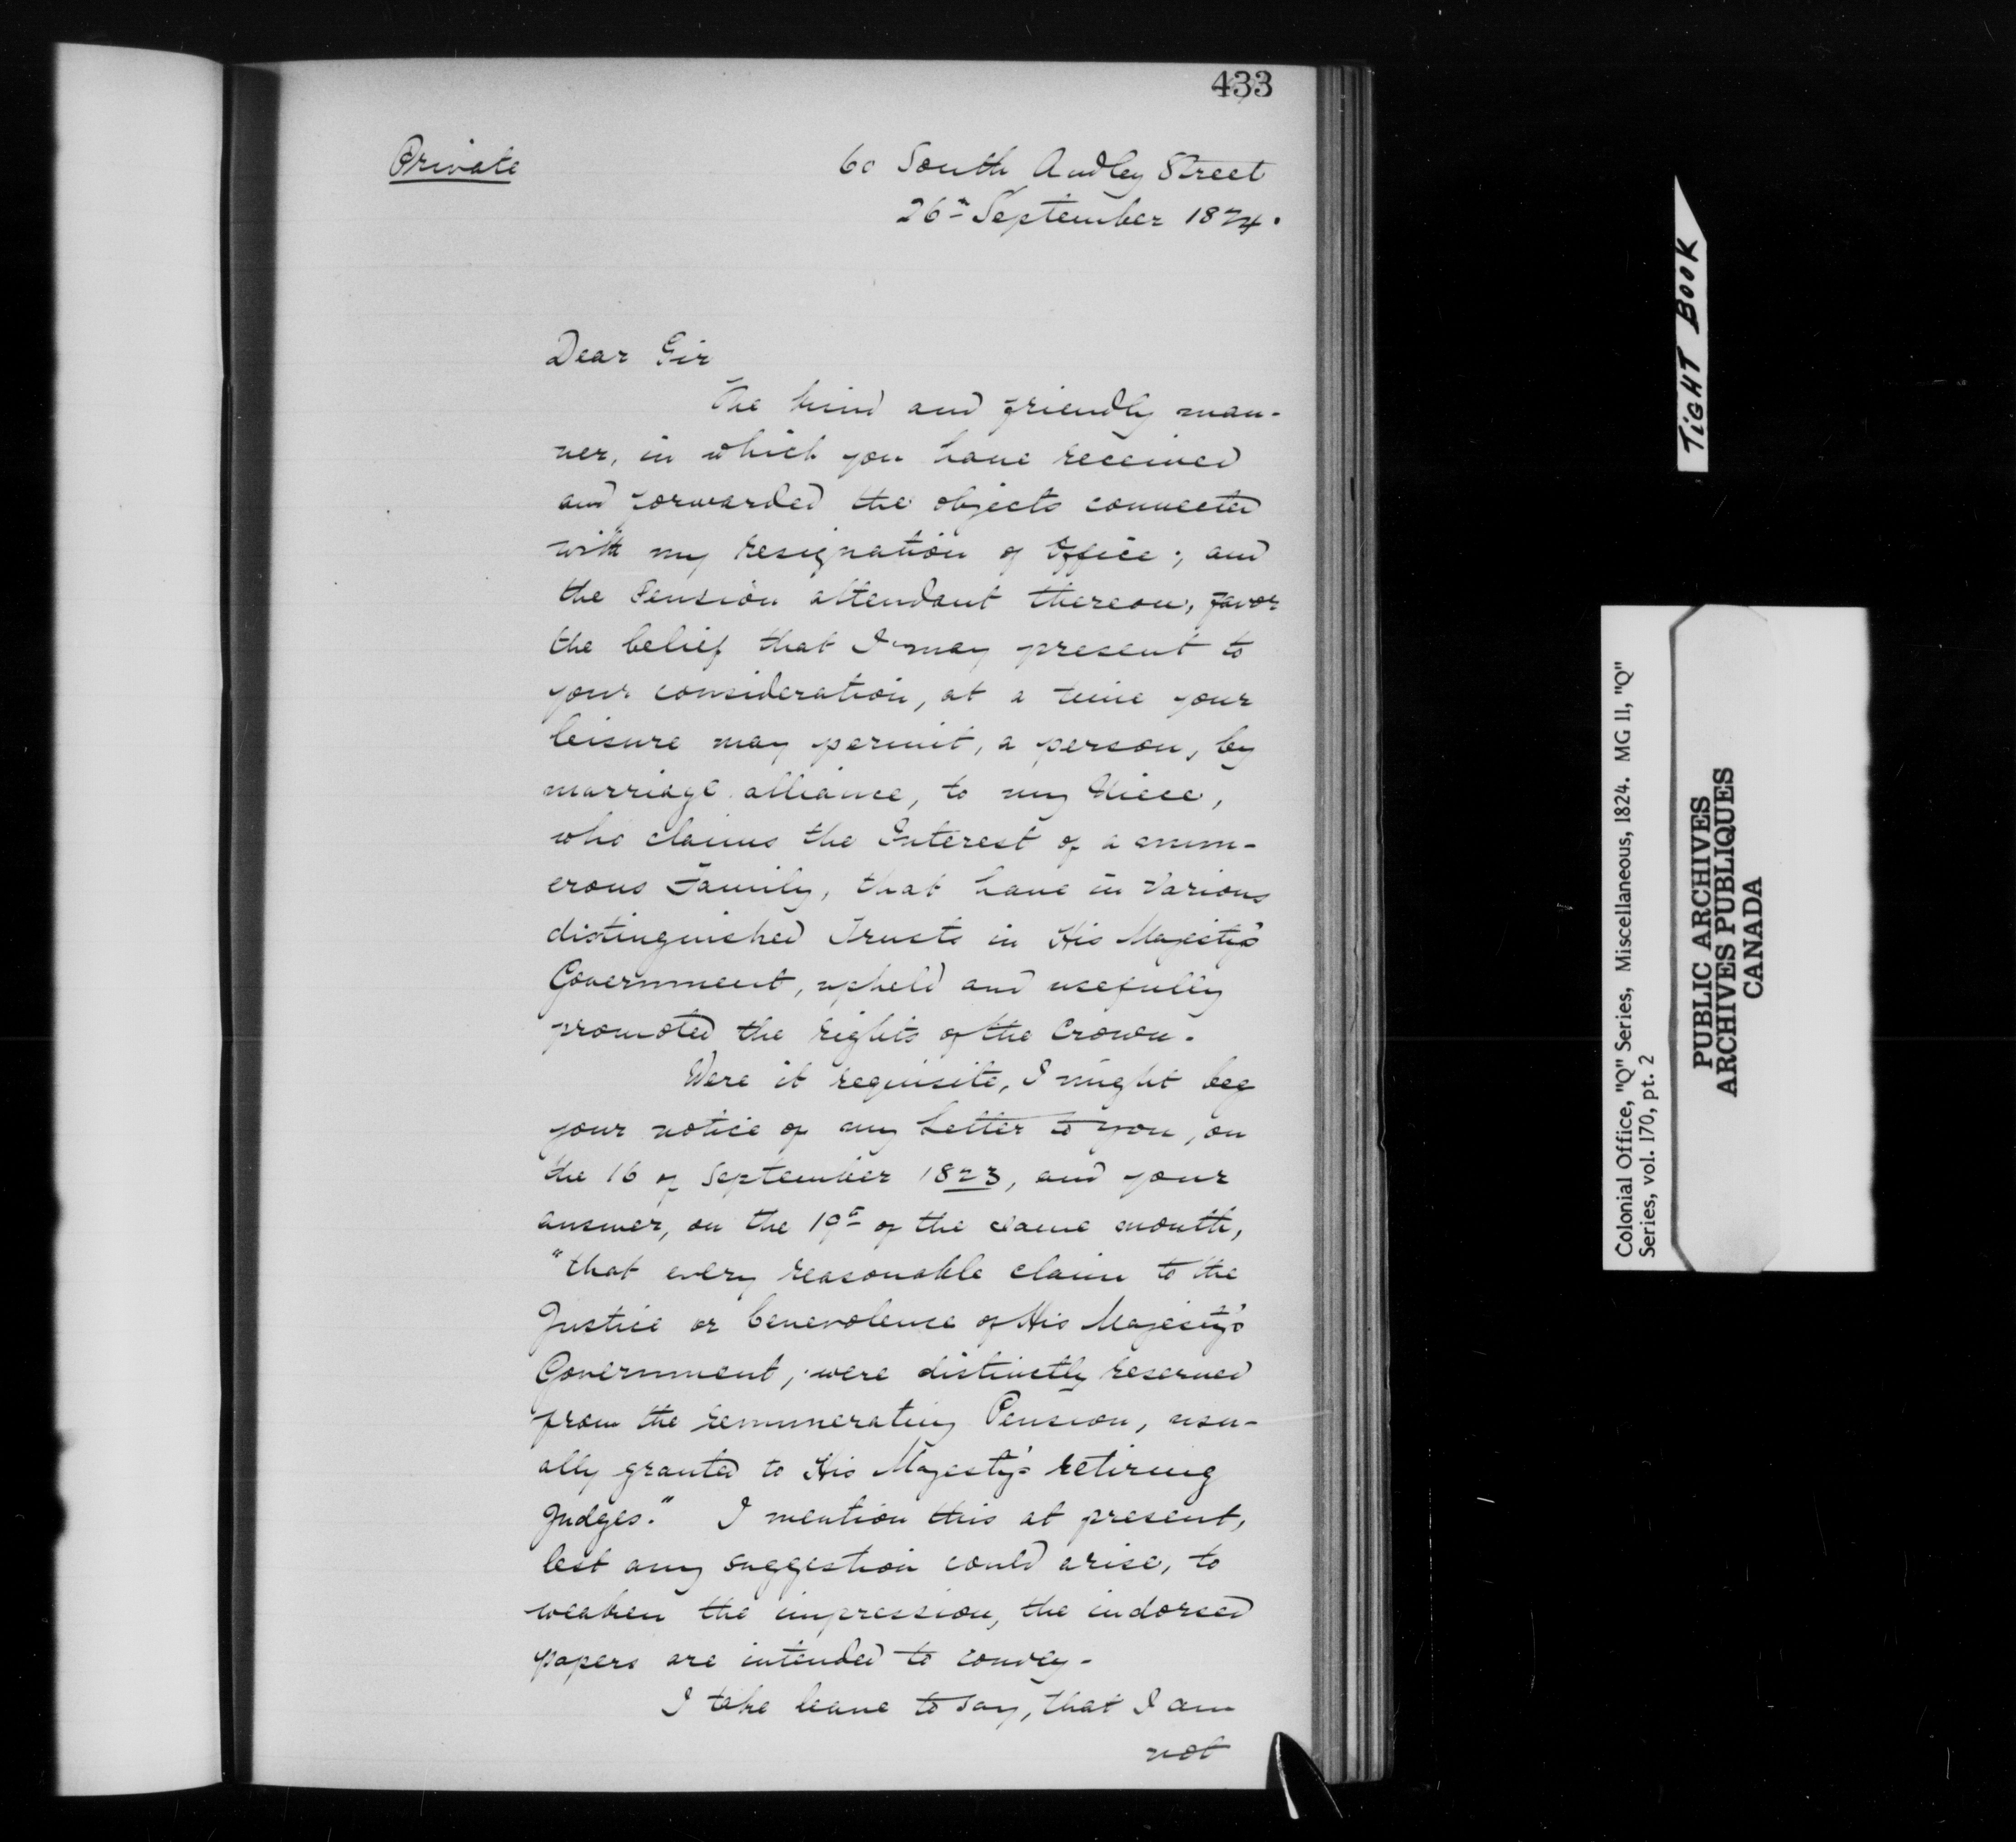 433
Private
60 South Audley Street
26th September 1824.
Dear Sir
The kind and friendly man-
ner, in which you have received
and forwarded the objects connected
with my resignation of Office; and
the Pension attendant thereon, favor
the belief that I may present to
your consideration, at a time your
leisure may permit, a person, by
marriage alliance, to my Niece,
who claims the Interest of a num-
erous Family, that have in various
distinguished Trusts in His Majesty's
Government, upheld and usefully
promoted the rights of the Crown.
Were it requisite, I might beg
your notice of my Letter to you, on
the 16 of September 1823, and your
answer, on the 19th of the same month,
"that every reasonable claim to the
Justice or benevolence of His Majesty's
Government, were distinctly reserved
from the remunerating Pension, usu-
ally granted to His Majesty's retiring
Judges." I mention this at present,
lest any suggestion could arise, to
weaken the impression, the indorsed
papers are intended to convey.
I take leave to say, that I am
not
TIGHT BOOK
Colonial Office, "Q" Series, Miscellaneous, 1824. MG 11, "Q"
Series, vol. 170, pt. 2
PUBLIC ARCHIVES
ARCHIVES PUBLIQUES
CANADA